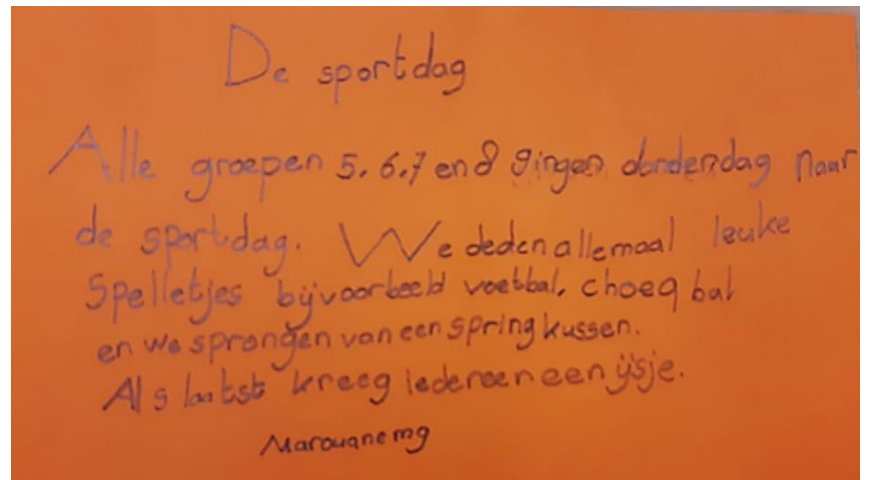 De sportdag
Alle groepen 5, 6, 7 en 8 gingen donderdag naar
de sportdag. We deden allemaal leuke
Spelletjes bijvoorbeeld voetbal, choeq bal
en we sprongen van een spring kussen.
Als laatst kreeg iedereen een ijsje.
Marouane mg